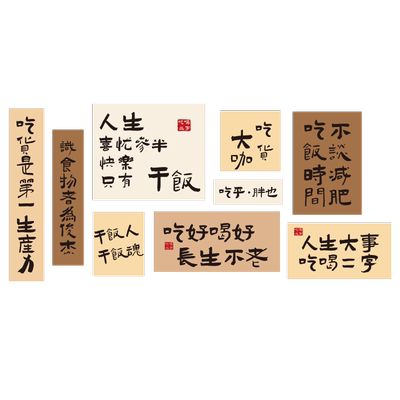 吃貨是第一生產力
識食物者為俊杰
人生
喜忧參半
快樂
只有 干飯
吃貨
大咖
吃乎·胖也
不談減肥
吃飯時間
干飯人
干飯魂
吃好喝好
長生不老
人生大事
吃喝二字